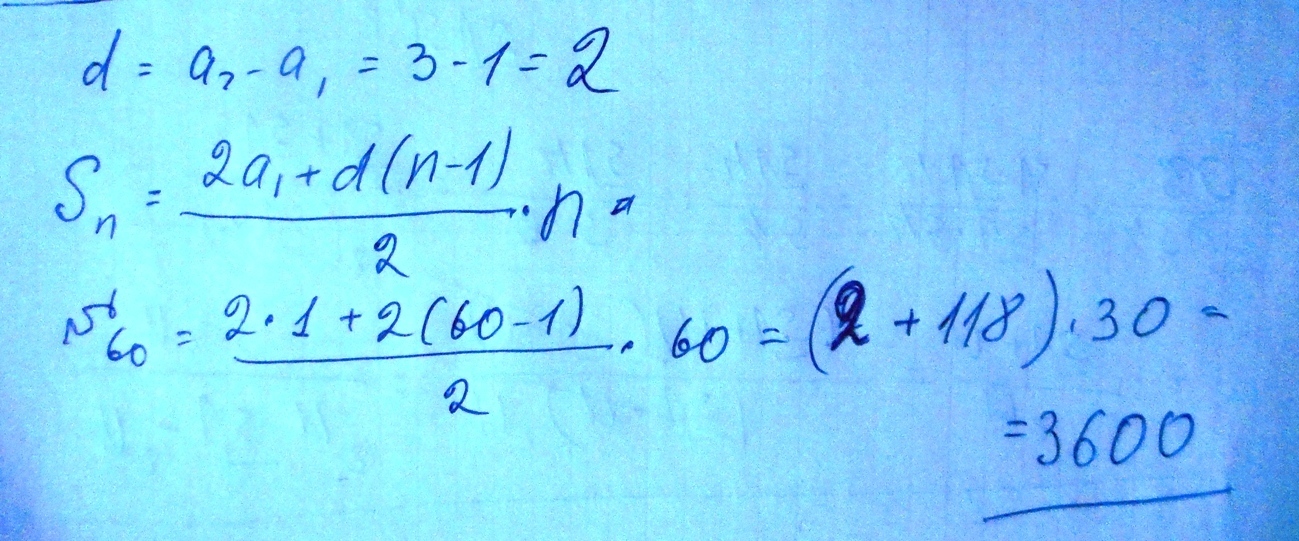 d = a₂ - a₁ = 3 - 1 = 2
Sₙ = (2a₁ + d(n-1))/2 · n =
S₆₀ = (2·1 + 2(60-1))/2 · 60 = (2 + 118)·30 =
= 3600